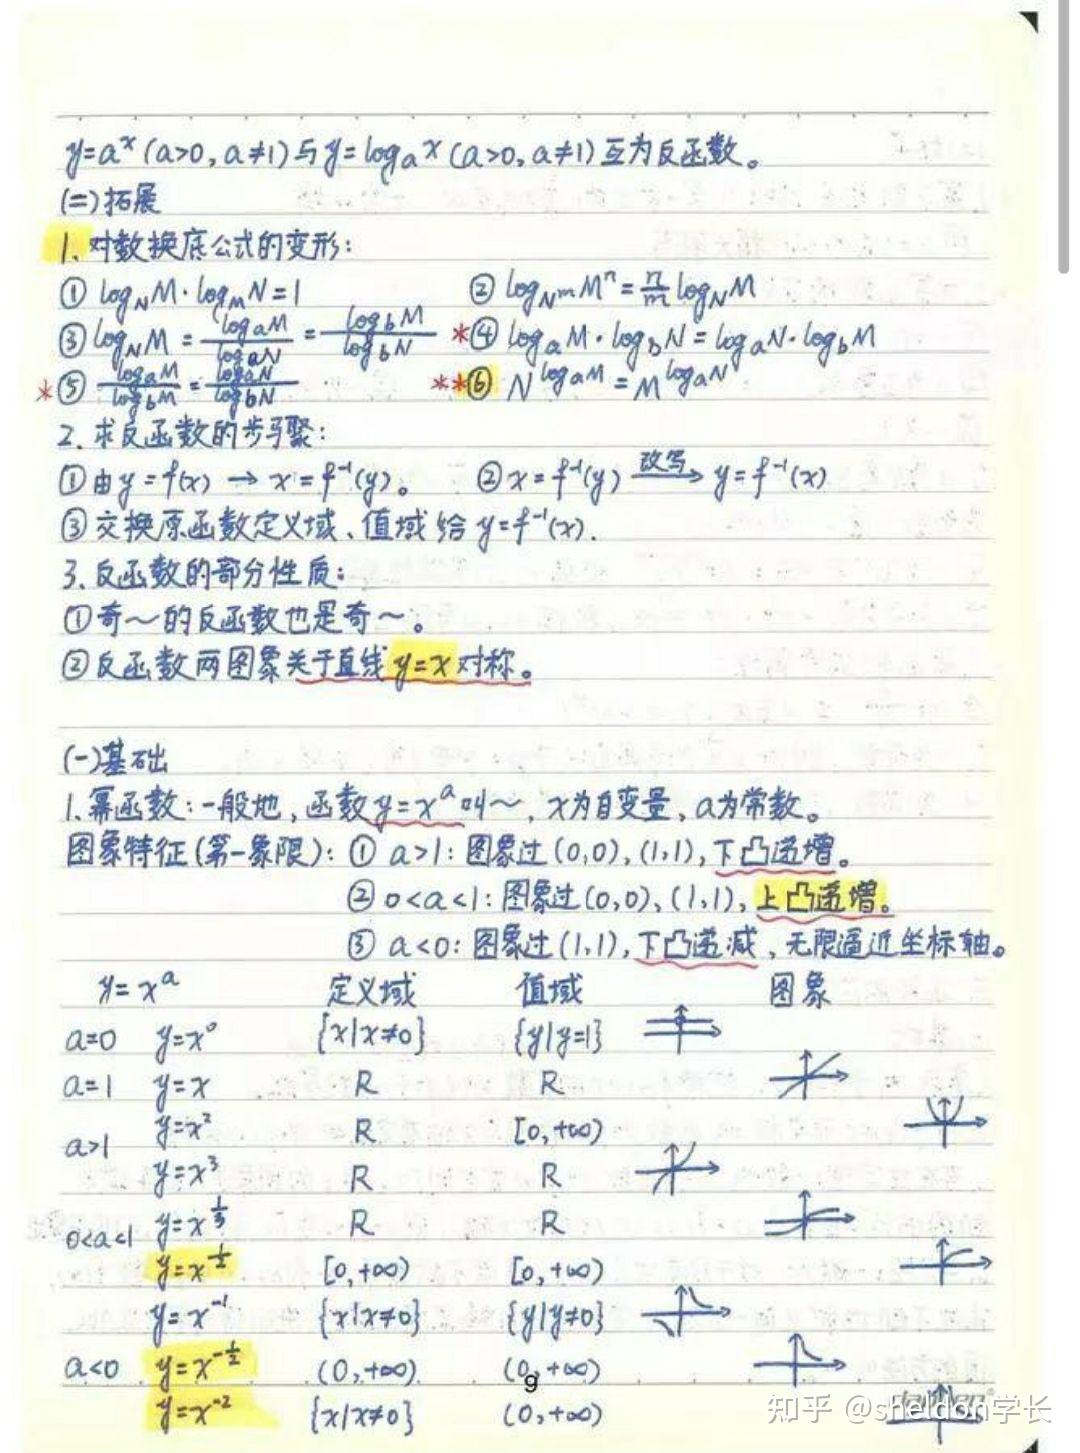 y=aˣ(a>0,a≠1)与y=logₐx(a>0,a≠1)互为反函数。
(二)拓展
1.对数换底公式的变形:
① log_N M·log_M N=1 ② log_{N^m} M^n = n/m log_N M
③ log_N M = log_a M / log_a N = log_b M / log_b N *④ log_a M·log_b N = log_a N·log_b M
*⑤ log_a M / log_b M = log_a N / log_b N **⑥ N^{log_a M} = M^{log_a N}
2.求反函数的步骤:
①由y=f(x)→x=f⁻¹(y)。 ②x=f⁻¹(y) 改写→ y=f⁻¹(x)
③交换原函数定义域、值域给y=f⁻¹(x).
3.反函数的部分性质:
①奇~的反函数也是奇~。
②反函数两图象关于直线y=x对称。
(一)基础
1.幂函数:一般地,函数y=xᵃ叫~,x为自变量,a为常数。
图象特征(第一象限):① a>1:图象过(0,0),(1,1),下凸递增。
② 0<a<1:图象过(0,0)、(1,1),上凸递增。
③ a<0:图象过(1,1),下凸递减,无限逼近坐标轴。
y=xᵃ 定义域 值域 图象
a=0 y=x⁰ {x|x≠0} {y|y=1}
a=1 y=x R R
a>1 y=x² R [0,+∞)
y=x³ R R
0<a<1 y=x^{1/3} R R
y=x^{1/2} [0,+∞) [0,+∞)
y=x⁻¹ {x|x≠0} {y|y≠0}
a<0 y=x^{-1/2} (0,+∞) (0,+∞)
y=x⁻² {x|x≠0} (0,+∞)
9
知乎 @sheldon学长